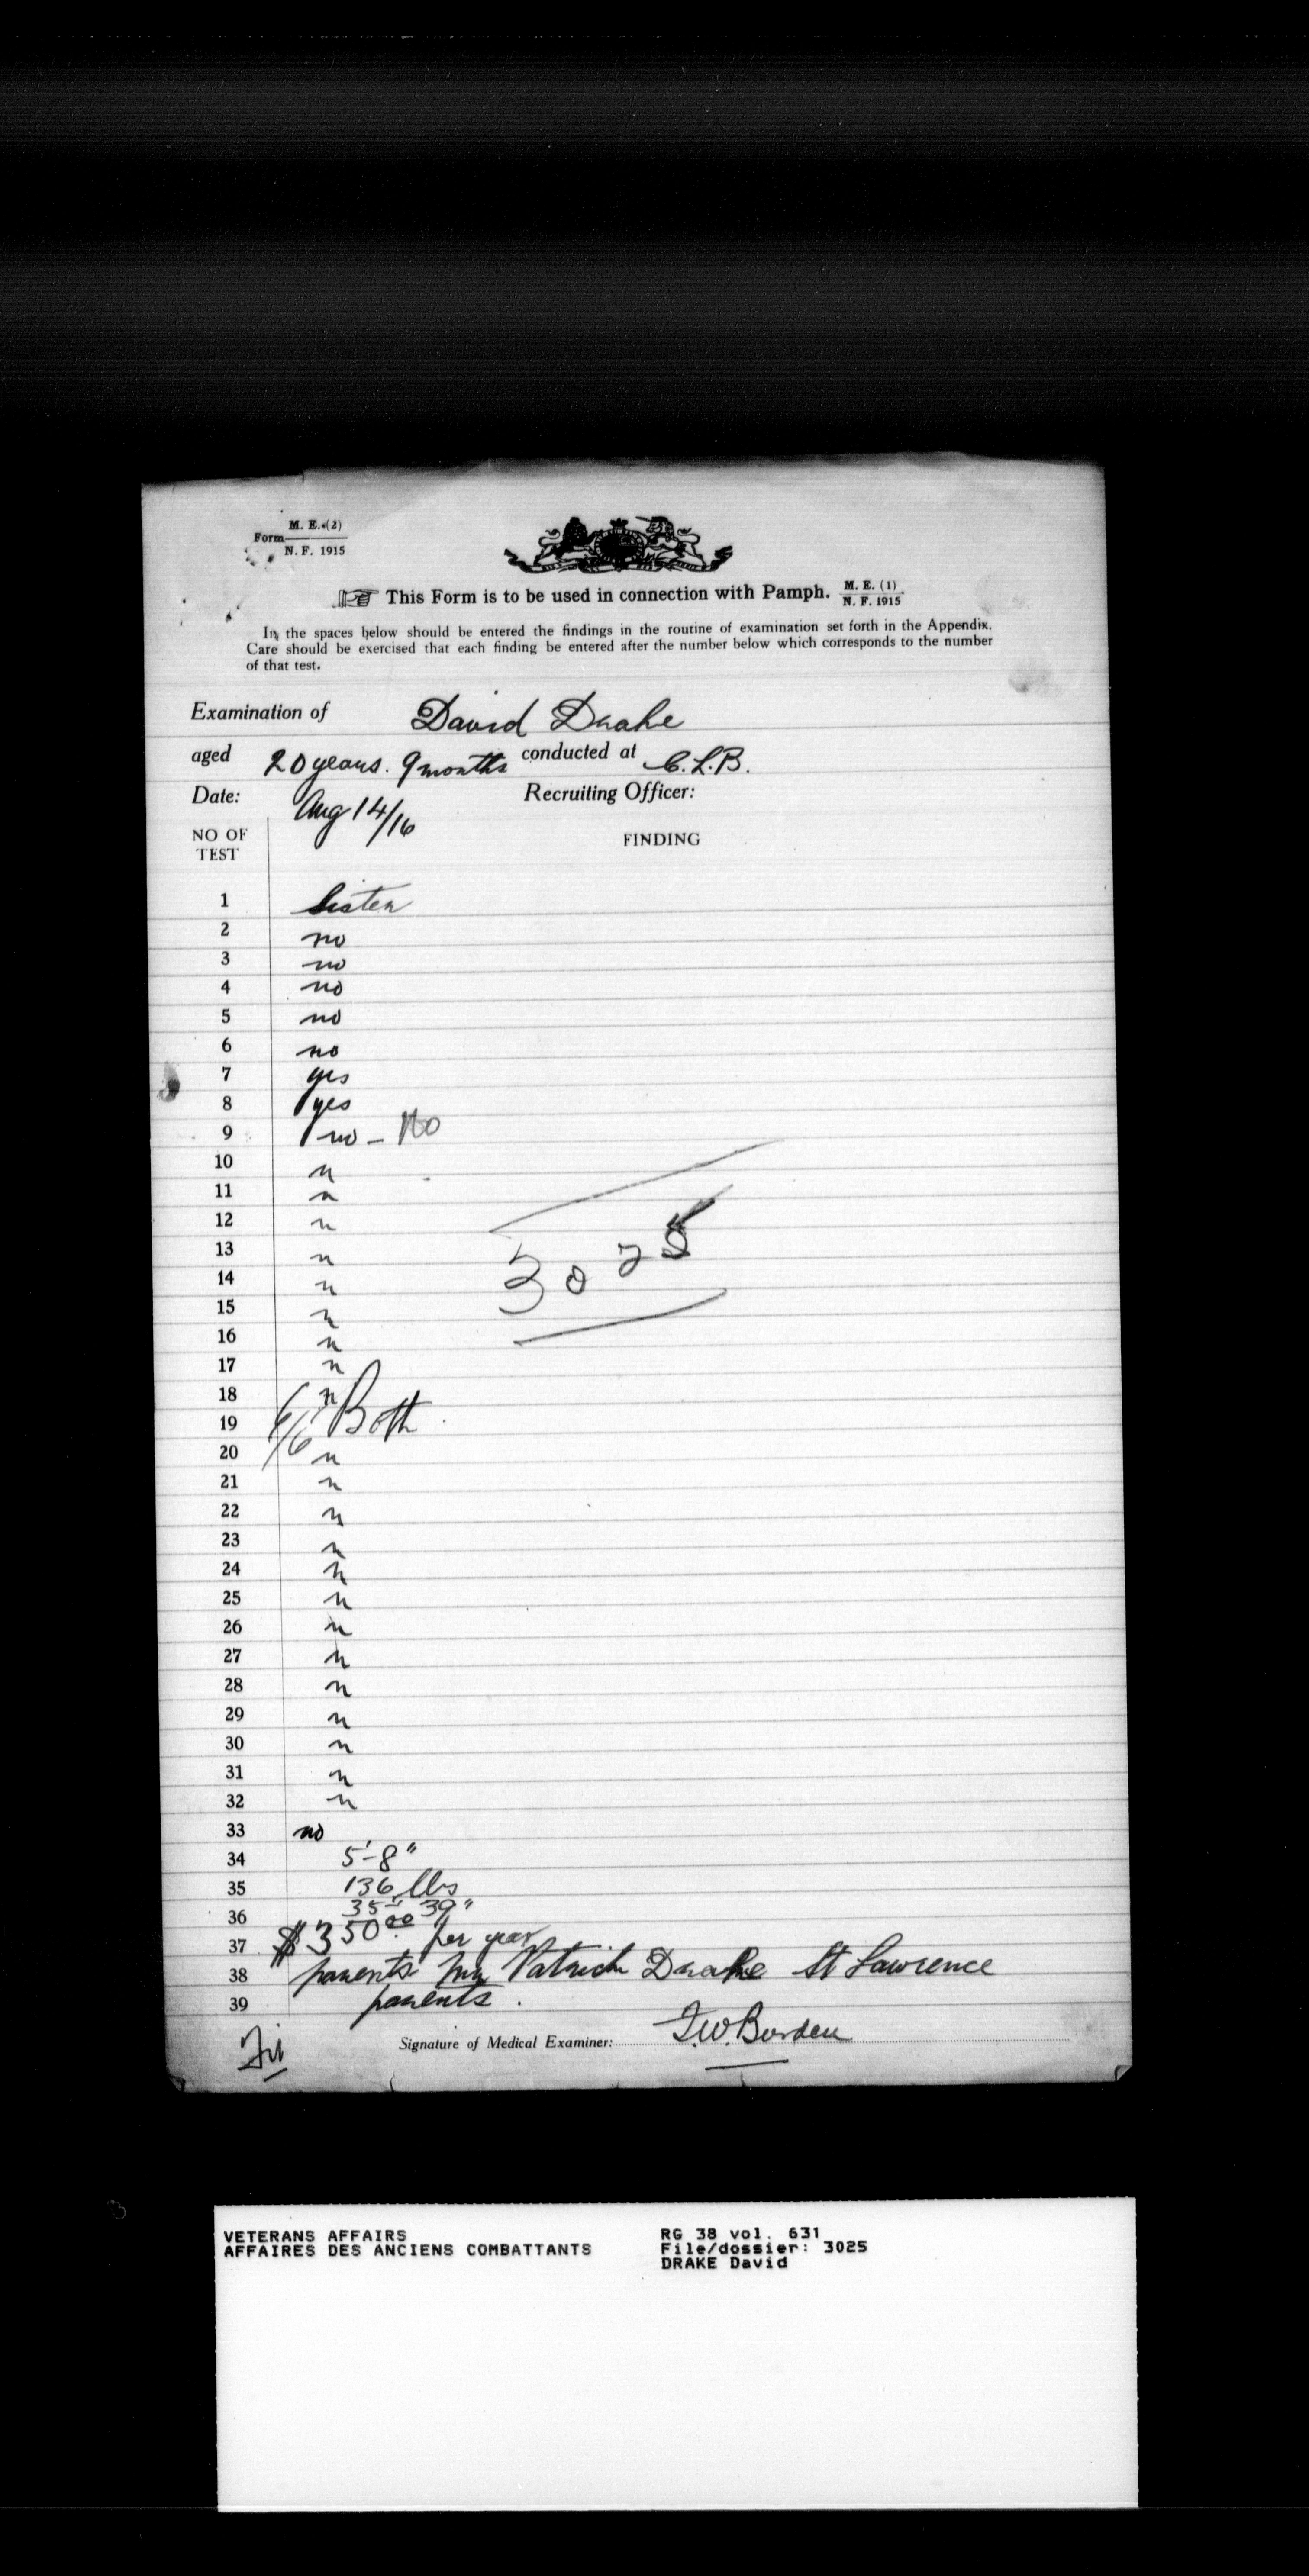 M. E. (2)
Form
N. F. 1915
This Form is to be used in connection with Pamph. M. E. (1) N. F. 1915
In the spaces below should be entered the findings in the routine of examination set forth in the Appendix.
Care should be exercised that each finding be entered after the number below which corresponds to the number
of that test.
Examination of David Drake
aged 20 years. 9 months conducted at C.L.B.
Date: Aug 14/16 Recruiting Officer:
NO OF TEST FINDING
1 Sister
2 no
3 no
4 no
5 no
6 no
7 yes
8 yes
9 no - No
10 n
11 n
12 n
3025
13 n
14 n
15 n
16 n
17 n
18 n
19 6/6 Both
20 n
21 n
22 n
23 n
24 n
25 n
26 n
27 n
28 n
29 n
30 n
31 n
32 n
33 no
34 5'-8"
35 136 lbs
36 35"- 39"
37 $350.00 per year
38 parents Patrick Drake St Lawrence
39 parents.
Fit
Signature of Medical Examiner: F.W. Burden
VETERANS AFFAIRS RG 38 vol. 631
AFFAIRES DES ANCIENS COMBATTANTS File/dossier: 3025
DRAKE David